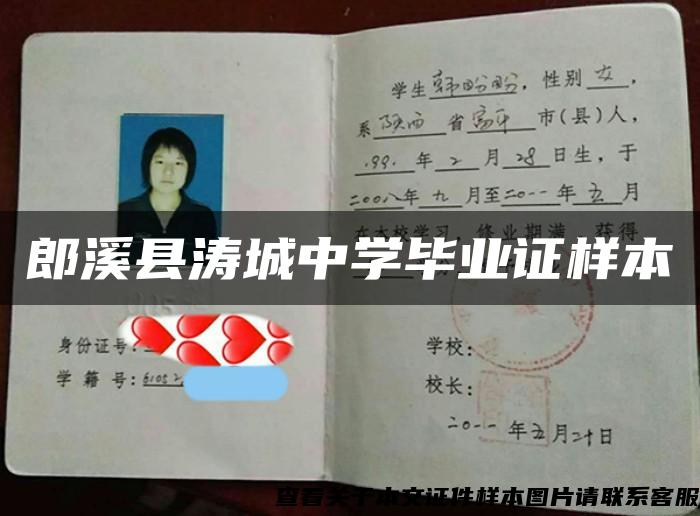 身份证号:
学 籍 号:6105
学生韩盼盼,性别女,
系陕西省富平市(县)人,
199.年2月28日生,于
二00八年九月至二0一一年五月
在本校学习,修业期满,获得
郎溪县涛城中学毕业证样本
学校:
校长:
二0一一年五月二十日
查看关于本文证件样本图片请联系客服